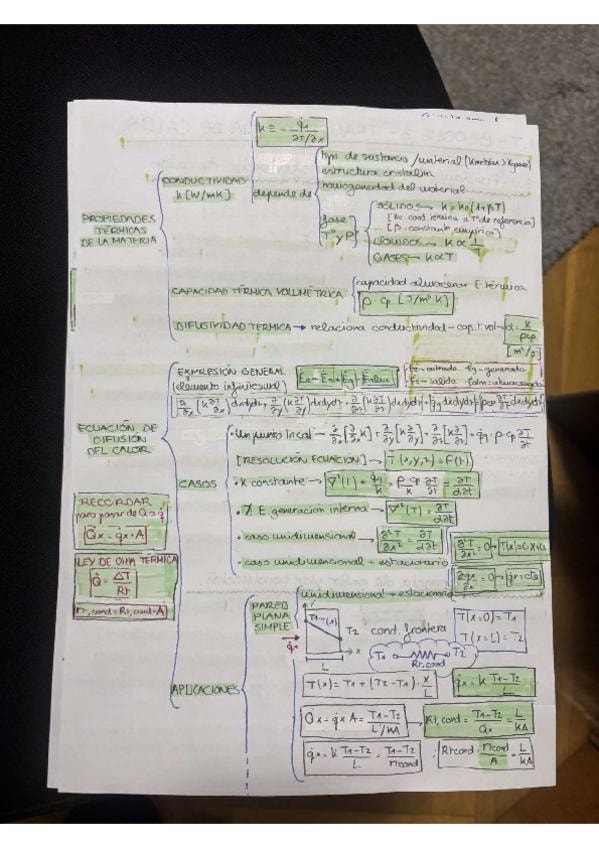 PROPIEDADES
TÉRMICAS
DE LA MATERIA
CONDUCTIVIDAD
k [W/mK]
k ≡ - q̇x / ∂T/∂x
depende de
tipo de sustancia/material
estructura cristalina
homogeneidad del material
fase
Tª y P
SÓLIDOS → k = k0 (1+βT)
[k0: cond. térmica a Tª de referencia]
[β: constante empírica]
LÍQUIDOS → k ∝ 1/T
GASES → k ∝ T
CAPACIDAD TÉRMICA VOLUMÉTRICA
capacidad almacenar E. térmica
ρ · cp [J/m³·K]
DIFUSIVIDAD TÉRMICA → relaciona conductividad - cap. t. vol → α = k/ρcp
[m²/s]
ECUACIÓN DE
DIFUSIÓN
DEL CALOR
EXPRESIÓN GENERAL
(elemento infinitesimal)
Ėe - Ės + Ėg = Ėalm
Ėe = entrada Ėg = generada
Ės = salida
∂/∂x [k ∂T/∂x] dxdydz + ∂/∂y [k ∂T/∂y] dxdydz + ∂/∂z [k ∂T/∂z] dxdydz + q̇g dxdydz = ρcp ∂T/∂t dxdydz
CASOS
∂/∂x [k ∂T/∂x] + ∂/∂y [k ∂T/∂y] + ∂/∂z [k ∂T/∂z] + q̇g = ρ·cp ∂T/∂t
[RESOLUCIÓN ECUACIÓN] → T(x,y,z) = f(t)
• k constante → ∇²(T) + q̇g/k = ρ·cp/k ∂T/∂t = ∂T/α∂t
• ∄ E. generacion interna → ∇²(T) = ∂T/α∂t
• caso unidimensional → ∂²T/∂x² = ∂T/α∂t
• caso unidimensional + estacionario
∂²T/∂x² = 0 → T(x) = C1x + C2
∂q̇x/∂x = 0 → q̇x = cte
RECORDAR
para pasar de Q̇ a q̇
Q̇x = q̇x · A
LEY DE OHM TÉRMICA
Q̇ = ΔT/Rt
rt,cond = Rt,cond · A
APLICACIONES
PARED
PLANA
SIMPLE
unidimensional + estacionario
T1
T(x)
T2
x
L
q̇x
cond. frontera
T(x=0) = T1
T(x=L) = T2
T1 T2
Rt,cond
T(x) = T1 + (T2 - T1) · x/L
q̇x = k T1-T2/L
Q̇x = q̇x A = T1-T2/L/kA
Rt,cond = T1-T2/Q̇x = L/kA
q̇x = k T1-T2/L = T1-T2/rtcond
Rtcond = rtcond/A = L/kA